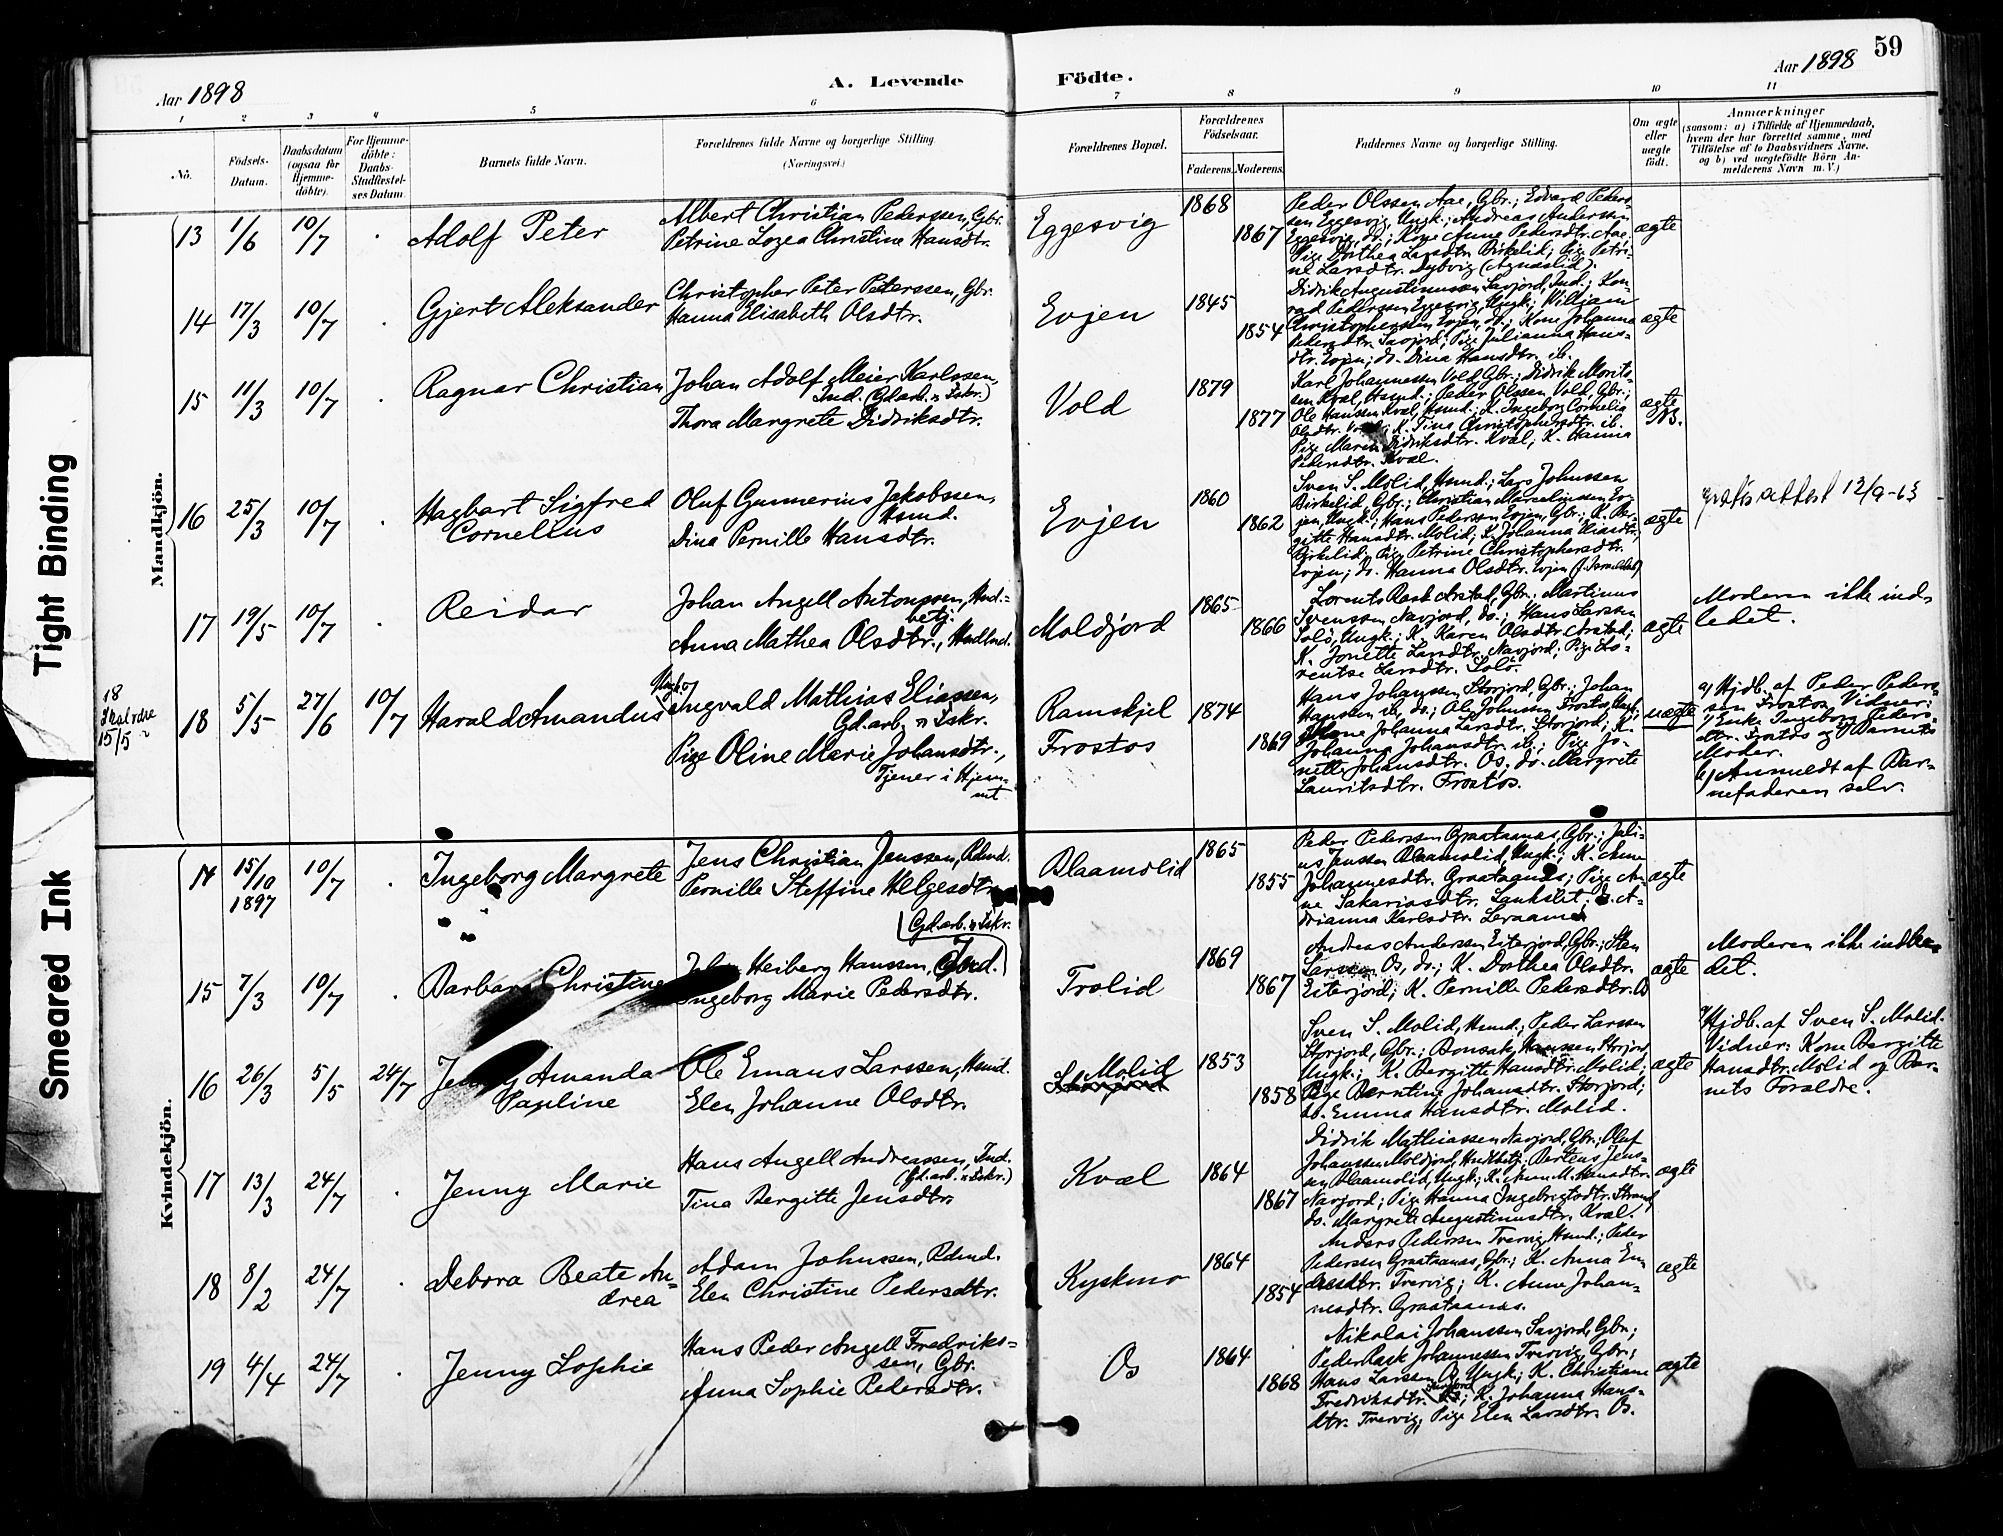 59
Aar 1898
A. Levende Födte.
Aar 1898
1 2 3 4 5 6 7 8 9 10 11
No.
Födsels-Datum.
Daabsdatum (ogsaa for Hjemme-döbte).
For Hjemme-döbte: Daabs-Stadfæstel-ses Datum.
Barnets fulde Navn.
Forældrenes fulde Navne og borgerlige Stilling (Næringsvei.)
Forældrenes Bopæl.
Forældrenes Födselsaar.
Faderens. Moderens.
Faddernes Navne og borgerlige Stilling.
Om ægte eller uægte födt.
Anmærkninger
(saasom: a) i Tilfælde af Hjemmedaab,
hvem der har forrettet samme, med
Tilföielse af to Daabsvidners Navne.
og b) ved uægtefödte Börn An-
melderens Navn m. V.)
Tight Binding
Smeared Ink
Mandkjön.
13 1/6 10/7 Adolf Peter
Albert Christian Pederssen, Gbr.
Petrine Lozea Christine Hansdtr.
Eggesvig 1868 1867
Peder Olssen Aae, Gbr.; Edvard Peders-
sen Eggesvig, Ungk.; Andreas Anderssen
Eggesvig, do.; Kone Anne Pedersdtr. Aae,
Pige Dorthea Larsdtr. Birkelid; Pige Petri-
ne Larsdtr. Dybvig
ægte
14 17/3 10/7 Gjert Aleksander
Christopher Peter Peterssen, Gbr.
Hanna Elisabeth Olsdtr.
Evjen 1845 1854
Didrik Augustinussen Savjord, Ind.; Kon-
rad Pederssen Eggesvig, Ungk.; Villiam
Christopherssen Evjen, do.; Kone Johanna
Pedersdtr. Savjord; Pige Julianna Hans-
dtr. Evjen; do. Dina Hansdtr. ib.
ægte
15 11/3 10/7 Ragnar Christian
Johan Adolf Meier Karlssen,
Ind. (Gd.arb. & Fskr.)
Thora Margrete Didriksdtr.
Vold 1879 1877
Karl Johannessen Vold, Gbr.; Didrik Morits-
sen Kval, Hsmd.; Peder Olssen Vold, Gbr.;
Ole Hanssen Kval, Hsmd.; K. Ingeborg Cornelia
Olsdtr. Vold; K. Tina Christophersdtr. ib.
Pige Maren Didriksdtr. Kval; K. Hanna
Pedersdtr. Kval.
ægte
NB.
16 25/3 10/7 Hagbart Sigfred
Cornelius
Oluf Gunnerius Jakobssen,
Hsmd.
Dina Pernille Hansdtr.
Evjen 1860 1862
Sven S. Molid, Hsmd.; Lars Johnssen
Birkelid, Gbr.; Christian Marcelinssen Ev-
jen, Ungk.; Hans Pederssen Evjen, Gbr.; K. Ber-
gitte Hansdtr. Molid; K. Johanna Eliasdtr.
Birkelid; Pige Petrine Christophersdtr.
Evjen; do. Hanna Olsdtr. Evjen
ægte
gratis attest 12/9-63
17 19/5 10/7 Reidar
Johan Angell Antonssen, Hnd.-
betj.
Anna Mathea Olsdtr., Hndlnd.
Moldjord 1865 1866
Lorents Rask Arstad, Gbr.; Martinus
Svenssen Navjord, do.; Hans Larssen
Solö, Ungk.; K. Karen Olsdtr. Arstad;
K. Jonette Larsdtr. Navjord; Pige Lo-
rentse Larsdtr. Solö.
ægte
Moderen ikke ind-
ledet.
18
Skal være
15/5
18 5/5 27/6 10/7 Harald Amandus
Ungk.
Ingvald Mathias Eliassen,
Gd.arb. & Fskr.
Pige Oline Marie Johansdtr.,
Tjener i Hjem-
met
Ramskjel
Frostos
1874 1869
Hans Johanssen Storjord, Gbr.; Johan
Hanssen ib., do.; Ole Johnssen Frostos, Ungk.;
Kone Johanna Larsdtr. Storjord; K.
Johanna Johansdtr. ib.; Pige Jo-
nette Johansdtr. Os, do. Margrete
Lauritsdtr. Frostos.
uægte
a) Hjdb. af Peder Peders-
sen Frostos, Vidner:
Enke Ingeborg Peders-
dtr. Frostos og Barnets
Moder.
b) Anmeldt af Bar-
nefaderen selv.
Kvindekjön.
14 15/10 1897 10/7 Ingeborg Margrete
Jens Christian Jenssen, Rdmd.
Pernille Steffine Helgesdtr.
Blaamolid 1865 1855
Peder Pederssen Graataanas, Gbr.; Juli-
us Jenssen Blaamolid, Ungk.; K. Anne
Johannesdtr. Graataanas; Pige An-
ne Sakariasdtr. Lankslet; do. A-
drianna Karlsdtr. Leraamo
ægte
15 7/3 10/7 Barbara Christine
(Gd.arb. & Fskr.)
Heiberg Hanssen, Ind.
Ingeborg Marie Pedersdtr.
Trolid 1869 1867
Andreas Anderssen Eiterjord, Gbr.; Sten
Larssen Os, do.; K. Dorthea Olsdtr.
Eiterjord; K. Pernille Pedersdtr. Os
ægte
Moderen ikke indle-
det.
16 26/3 5/5 24/7 Jenny Amanda
Pauline
Ole Emaus Larssen, Hsmd.
Elen Johanne Olsdtr.
Molid
1853 1858
Sven S. Molid, Hsmd.; Peder Larssen
Storjord, Gbr.; Bonsak Hanssen Storjord
Ungk.; K. Bergitte Hansdtr. Molid;
Pige Berntine Johansdtr. Storjord;
do. Emma Hansdtr. Molid.
ægte
a) Hjdb. af Sven S. Molid.
Vidner: Kone Bergitte
Hansdtr. Molid og Bar-
nets Forældre.
17 13/3 24/7 Jenny Marie
Hans Angell Andreassen, Ind.
(Gd.arb. & Fskr.)
Tina Bergitte Jensdtr.
Kval 1864 1867
Didrik Mathiassen Navjord, Gbr.; Oluf
Johanssen Moldjord, Hndlbetj.; Berteus Jens-
sen Blaamolid, Ungk.; K. Anne M. Hansdtr.
Navjord; Pige Hanna Ingebrigtsdtr. Strand,
do. Margrete Augustinusdtr. Kval.
ægte
18 8/2 24/7 Debora Beate An-
drea
Adam Johnssen, Rdmd.
Elen Christine Pedersdtr.
Kyskmo 1864 1854
Anders Pederssen Tvervig, Hsmd.; Peder
Pederssen Graataanas, Gbr.; K. Anna
Tvervig; K. Anne Johan-
nesdtr. Graataanas.
ægte
19 4/4 24/7 Jenny Sophie
Hans Peder Angell Fredriks-
sen, Gbr.
Anna Sophie Pedersdtr.
Os 1864 1868
Nikolai Johanssen Savjord, Gbr.;
Peder Rask Johannessen Tvervig, Gbr.;
Hans Larssen Os, Ungk.; K. Christiane
Fredriksdtr. Savjord; K. Johanna Hans-
dtr. Tvervig; Pige Elen Larsdtr. Os.
ægte